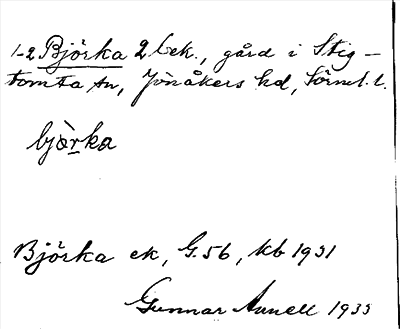 1-2 Björka 2 bek., gård i Stig-
tomta sn, Jönåkers hd, Sörml. l.
bjö̀rka
Björka ek, G. 56, kb 1931
Gunnar Annell 1935